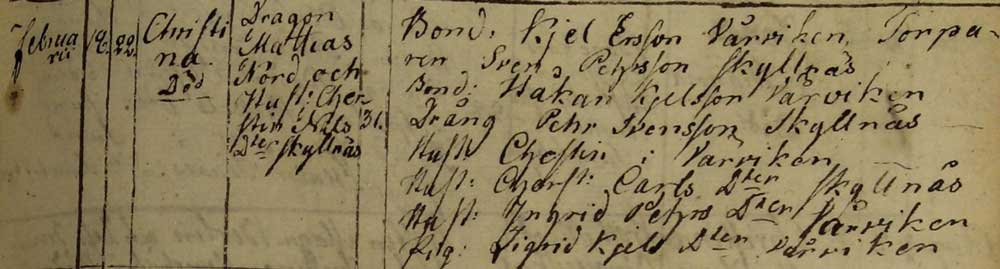 Februa
rii
19. 22.
Christi
na.
Död
Dragon
Mathias
Nörd och
Hust: Cher
stin Nils 31.
Dter Skyllnäs
Bond: Kjel Ersson Vårviken, Torpa-
ren Sven Pehrsson Skyllnäs
Bond: Håkan Kjelsson Vårviken
Dräng Pehr Svensson Skyllnäs
Hust: Chestin i Vårviken
Hust: Cherst: Carls Dter Skyllnäs
Hust: Ingrid Pehrs Dter Vårviken
Pig: Sigrid Kjels Dter Vårviken